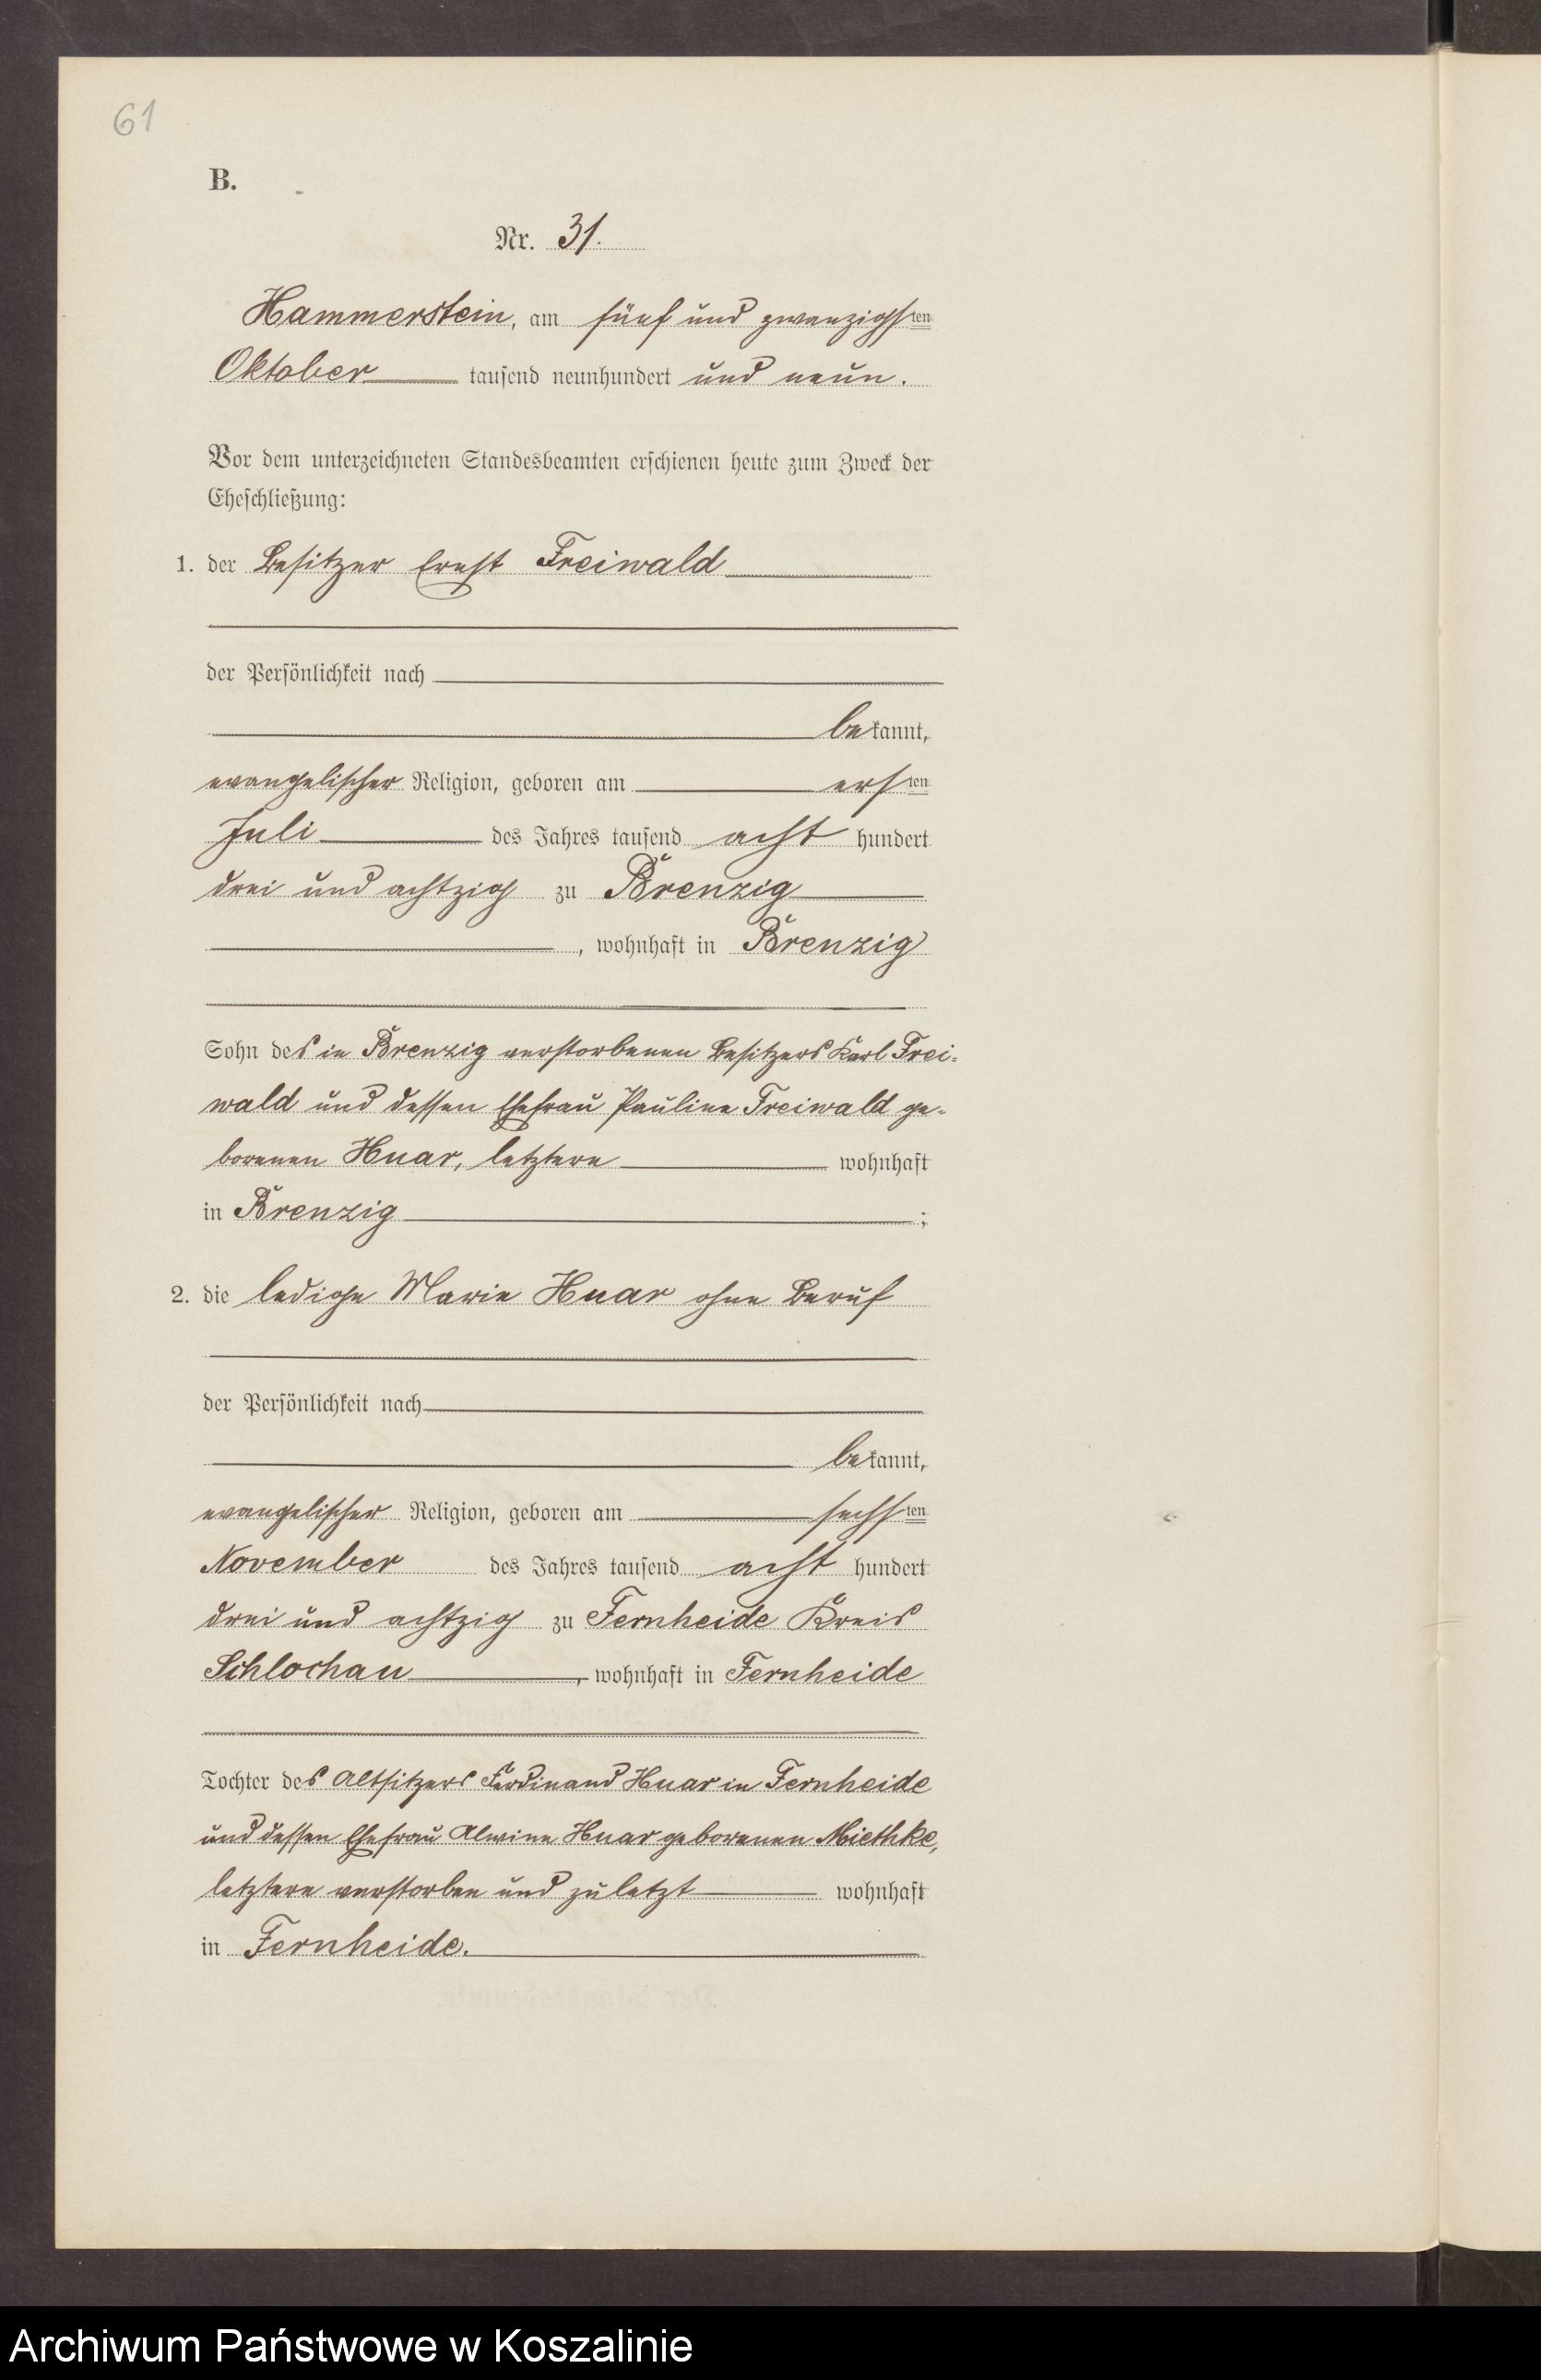 61
B.
Nr. 31.
Hammerstein, am fünf und zwanzigsten
Oktober tausend neunhundert und neun.
Vor dem unterzeichneten Standesbeamten erschienen heute zum Zweck der
Eheschließung:
1. der Besitzer Ernst Freiwald
der Persönlichkeit nach
bekannt,
evangelischer Religion, geboren am ersten
Juli des Jahres tausend acht hundert
drei und achtzig zu Brenzig
, wohnhaft in Brenzig
Sohn des in Brenzig verstorbenen Besitzers Karl Frei-
wald und dessen Ehefrau Pauline Freiwald ge-
borenen Huar, letztere wohnhaft
in Brenzig ;
2. die ledige Marie Huar ohne Beruf
der Persönlichkeit nach
bekannt,
evangelischer Religion, geboren am sechsten
November des Jahres tausend acht hundert
drei und achtzig zu Fernheide Kreis
Schlochau , wohnhaft in Fernheide
Tochter des Altsitzers Ferdinand Huar in Fernheide
und dessen Ehefrau Alwine Huar geborenen Miethke,
letztere verstorben und zuletzt wohnhaft
in Fernheide.
Archiwum Państwowe w Koszalinie